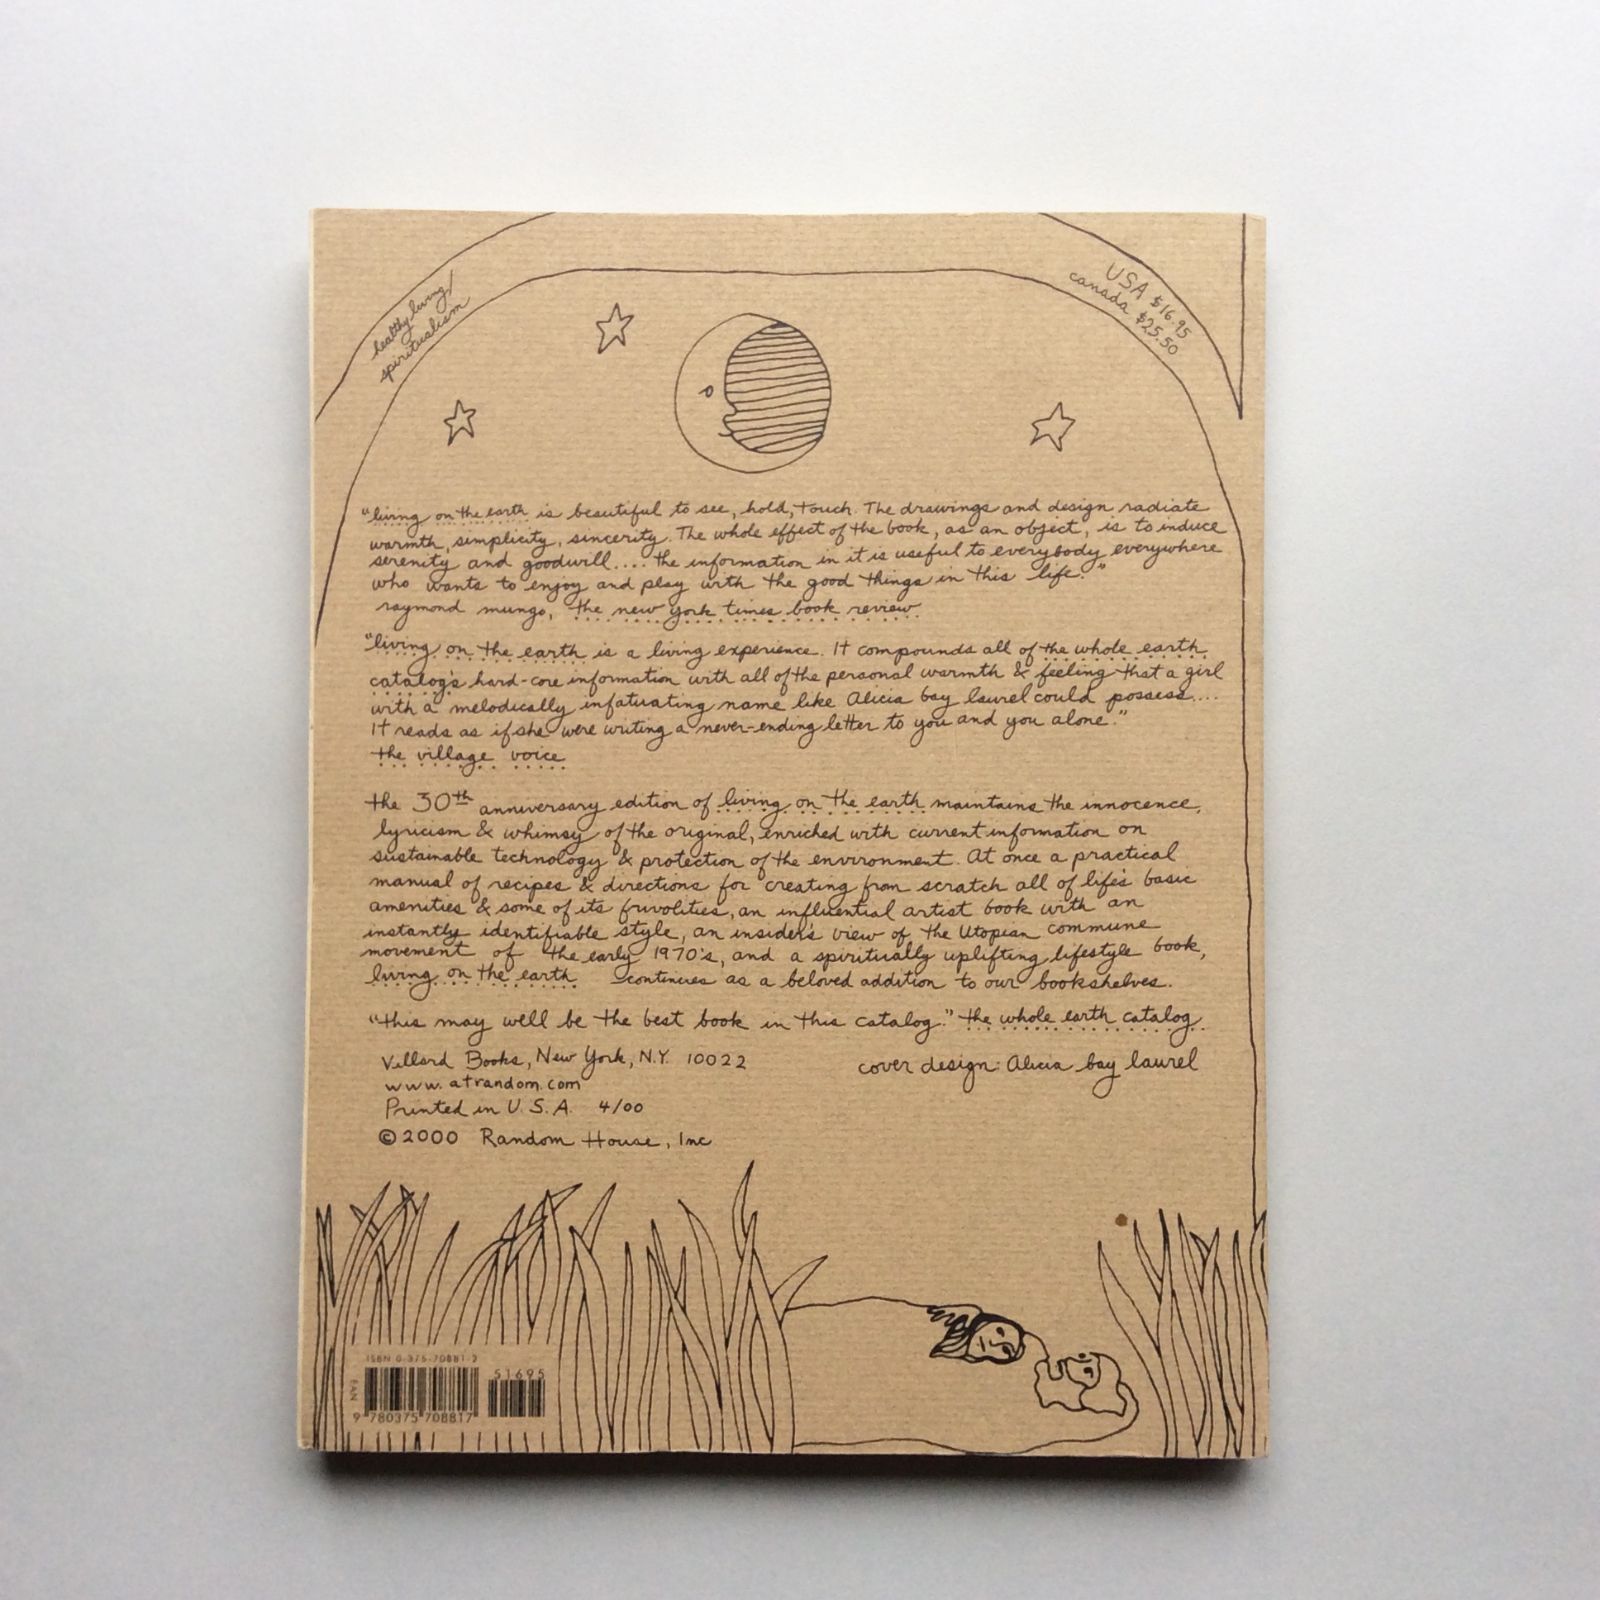 healthy living/
spiritualism
USA $16.95
canada $25.50
"living on the earth is beautiful to see, hold, touch. The drawings and design radiate
warmth, simplicity, sincerity. The whole effect of the book, as an object, is to induce
serenity and goodwill.... the information in it is useful to everybody everywhere
who wants to enjoy and play with the good things in this life."
raymond mungo, the new york times book review
"living on the earth is a living experience. It compounds all of the whole earth
catalog's hard-core information with all of the personal warmth & feeling that a girl
with a melodically infatuating name like Alicia bay laurel could possess....
It reads as if she were writing a never-ending letter to you and you alone."
the village voice
the 30th anniversary edition of living on the earth maintains the innocence,
lyricism & whimsy of the original, enriched with current information on
sustainable technology & protection of the environment. At once a practical
manual of recipes & directions for creating from scratch all of life's basic
amenities & some of its frivolities, an influential artist book with an
instantly identifiable style, an insider's view of the Utopian commune
movement of the early 1970's, and a spiritually uplifting lifestyle book,
living on the earth continues as a beloved addition to our bookshelves.
"this may well be the best book in this catalog." the whole earth catalog
Villard Books, New York, N.Y. 10022
cover design: Alicia bay laurel
www.atrandom.com
Printed in U.S.A. 4/00
©2000 Random House, Inc
ISBN 0-375-70881-2
51695
EAN
9 780375 708817